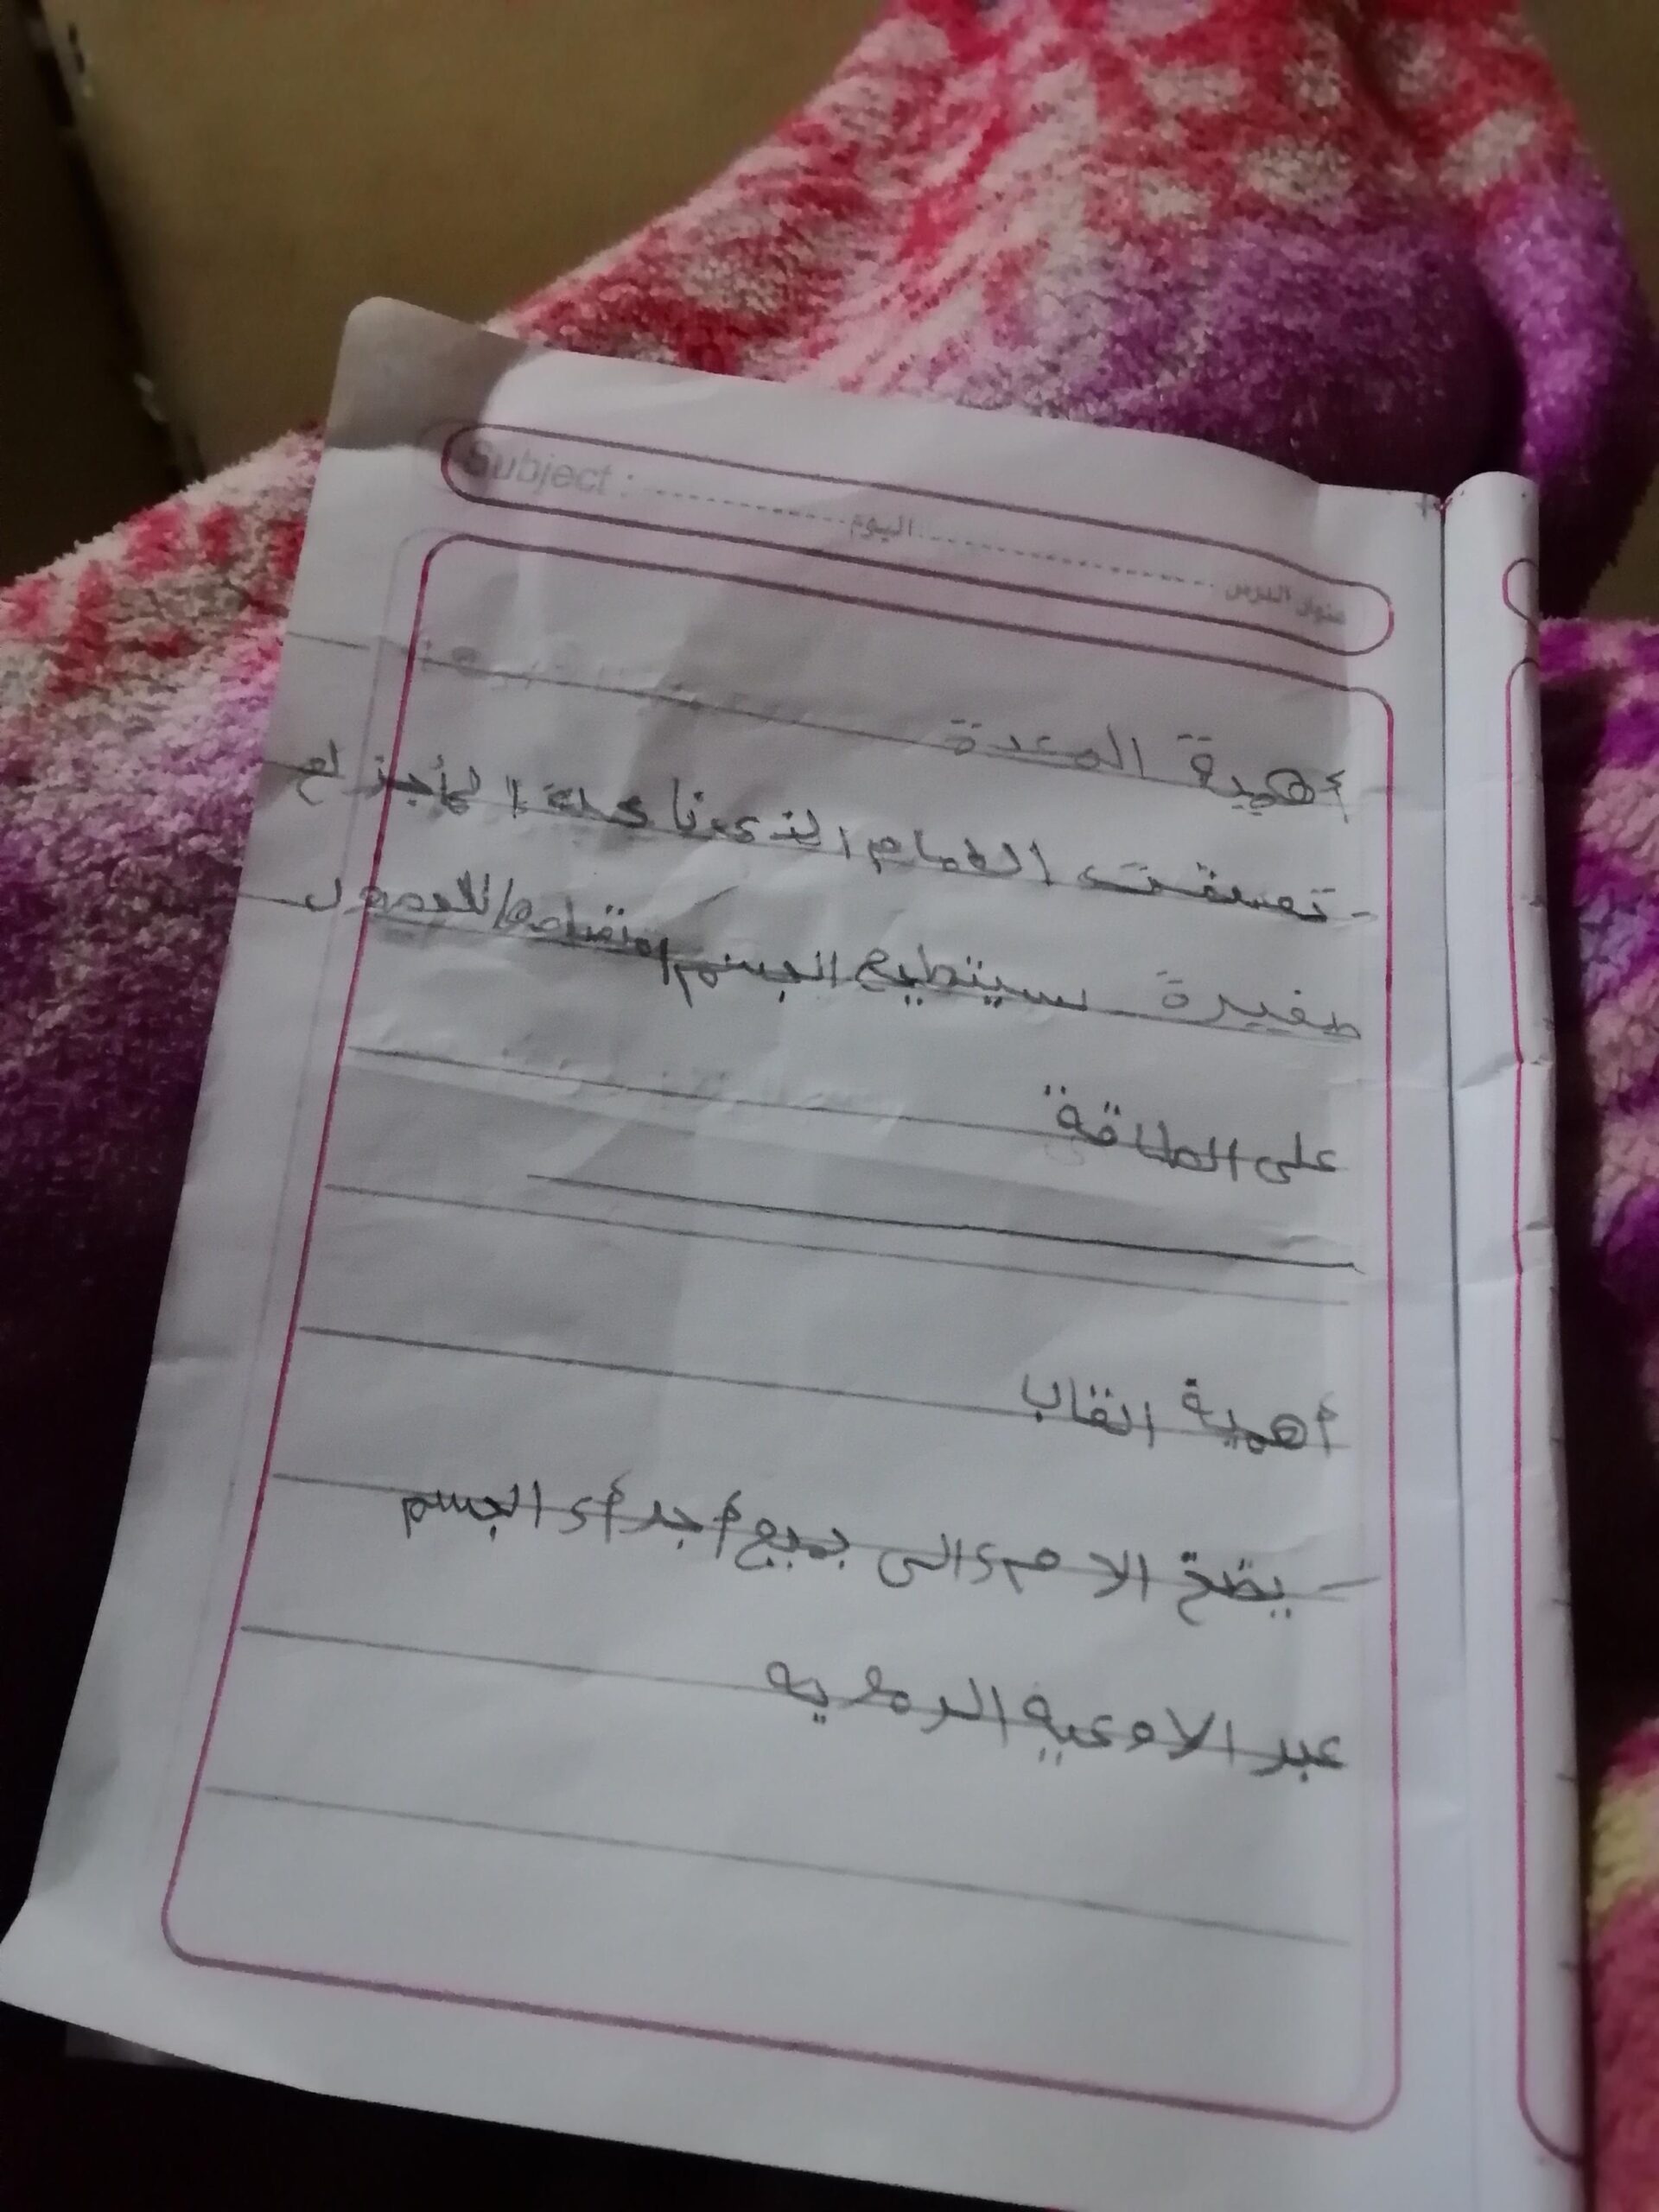 Subject : اليوم
عنوان الدرس
أهمية المعدة
- تفتت الطعام الذي نأكله إلى أجزاء
صغيرة يستطيع الجسم امتصاصها للحصول
على الطاقة
أهمية القلب
- يضخ الدم الى جميع أجزاء الجسم
عبر الاوعية الدموية